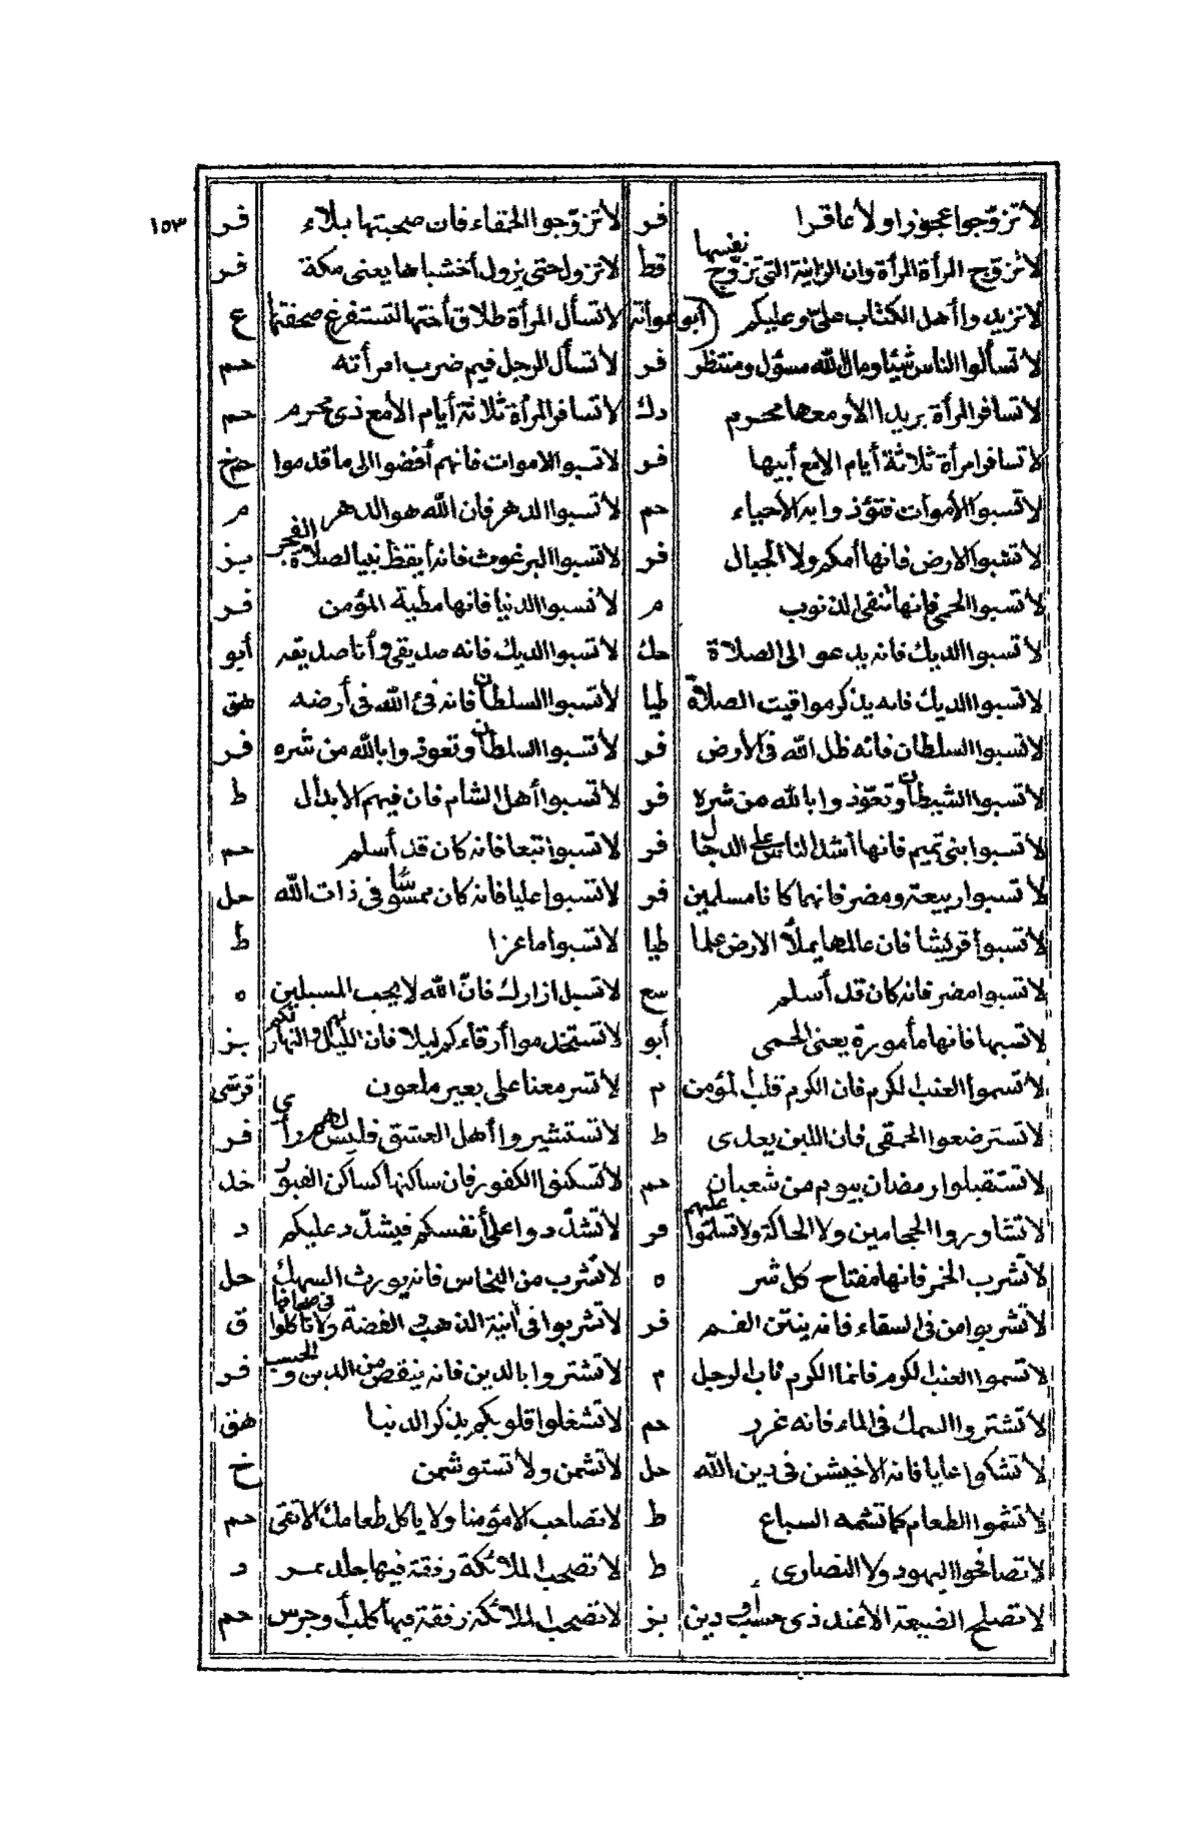 ١٥٣
لا تزوّجوا عجوزا ولا عاقرا فر لا تزوّجوا الحمقاء فان صحبتها بلاء فر
لا تزوّج المرأة المرأة وان الزانية التى تزوّج نفسها قط لا تزول حتى يزول أخشباها يعنى مكة فر
لا تزيدوا أهل الكتاب على وعليكم (أبو عوانة لا تسأل المرأة طلاق أختها لتستفرغ صحفتها ع
لا تسألوا الناس شيئا ومال الله مسؤل ومنتظر فر لا تسأل الرجل فيم ضرب امرأته حم
لا تسافر المرأة بريدا الا ومعها محرم دك لا تسافر المرأة ثلاثة أيام الا مع ذى محرم حم
لا تسافر امرأة ثلاثة أيام الا مع أبيها فر لا تسبوا الاموات فانهم أفضوا الى ما قدموا حم خ
لا تسبوا الأموات فتؤذوا به الأحياء حم لا تسبوا الدهر فان الله هو الدهر م
لا تسبوا الارض فانها أمكم ولا الجبال فر لا تسبوا البرغوث فانه أيقظ نبيا لصلاة الفجر بز
لا تسبوا الحمى فانها تنقى الذنوب م لا تسبوا الدنيا فانها مطية المؤمن فر
لا تسبوا الديك فانه يدعو الى الصلاة حك لا تسبوا الديك فانه صديقى وأنا صديقه أبو
لا تسبوا الديك فانه يذكر مواقيت الصلاة طيا لا تسبوا السلطان فانه فئ الله فى أرضه هق
لا تسبوا السلطان فانه ظل الله فى الأرض فر لا تسبوا السلطان وتعوذوا بالله من شره فر
لا تسبوا الشيطان وتعوّذوا بالله من شره فر لا تسبوا أهل الشام فان فيهم الابدال ط
لا تسبوا بنى تميم فانها أشد الناس على الدجال فر لا تسبوا تبعا فانه كان قد أسلم حم
لا تسبوا ربيعة ومضر فانهما كانا مسلمين فر لا تسبوا عليا فانه كان ممسوسا فى ذات الله حل
لا تسبوا قريشا فان عالمها يملأ الارض علما طيا لا تسبوا ماعزا ط
لا تسبوا مضر فانه كان قد أسلم سع لا تسبل ازارك فانّ الله لا يحب المسبلين ه
لا تسبها فانها مأمورة يعنى الحمى أبو لا تستخدموا أرقاءكم ليلا فان الليل لهم والنهار لكم بز
لا تسموا العنب الكرم فان الكرم قلب المؤمن م لا تسر معنا على بعير ملعون قرشى
لا تسترضعوا الحمقى فان اللبن يعدى ط لا تستشيروا أهل العشق فليس لهم رأى فر
لا تستقبلوا رمضان بيوم من شعبان حم لا تسكنوا الكفور فان ساكنها كساكن القبور خد
لا تشاوروا الحجامين ولا الحاكة ولا تسلموا عليهم فر لا تشدّدوا على أنفسكم فيشدّد عليكم د
لا تشرب الخمر فانها مفتاح كل شر ه لا تشرب من النحاس فانه يورث السهك حل
لا تشربوا من فى السقاء فانه ينتن الفم فر لا تشربوا فى أنية الذهب والفضة ولا تأكلوا فى صحافها ق
لا تسموا العنب الكرم فانما الكرم الرجل م لا تشتروا بالدين فانه ينقص من الدين والحسب فر
لا تشتروا السمك فى الماء فانه غرر حم لا تشغلوا قلوبكم بذكر الدنيا هق
لا تشكوا عليا فانه الاخيشن فى دين الله حل لا تشمن ولا تستوشمن خ
لا تشموا الطعام كما تشمه السباع ط لا تصاحب الا مؤمنا ولا ياكل طعامك الا تقى حم
لا تصافحوا اليهود ولا النصارى ط لا تصحب الملائكة رفقة فيها جلد نمر د
لا تصلح الضيعة الا عند ذى حسب أو دين بز لا تصحب الملائكة رفقة فيها كلب أو جرس حم